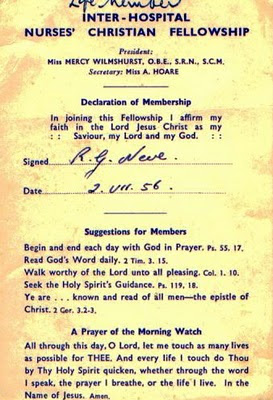 Life Member
INTER-HOSPITAL
NURSES' CHRISTIAN FELLOWSHIP
President:
Miss MERCY WILMSHURST, O.B.E., S.R.N., S.C.M.
Secretary: Miss A. HOARE
Declaration of Membership
In joining this Fellowship I affirm my
faith in the Lord Jesus Christ as my
: : Saviour, my Lord and my God. : :
Signed R. G. Neve.
Date 2. VII. 56.
Suggestions for Members
Begin and end each day with God in Prayer. Ps. 55, 17.
Read God's Word daily. 2 Tim. 3. 15.
Walk worthy of the Lord unto all pleasing. Col. 1. 10.
Seek the Holy Spirit's Guidance. Ps. 119, 18.
Ye are . . . known and read of all men—the epistle of
Christ. 2 Cor. 3.2-3.
A Prayer of the Morning Watch
All through this day, O Lord, let me touch as many lives
as possible for THEE. And every life I touch do Thou
by Thy Holy Spirit quicken, whether through the word
I speak, the prayer I breathe, or the life I live. In the
Name of Jesus. Amen.